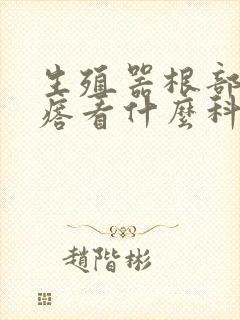 生殖器根部
痞看什麼科
趙階彬